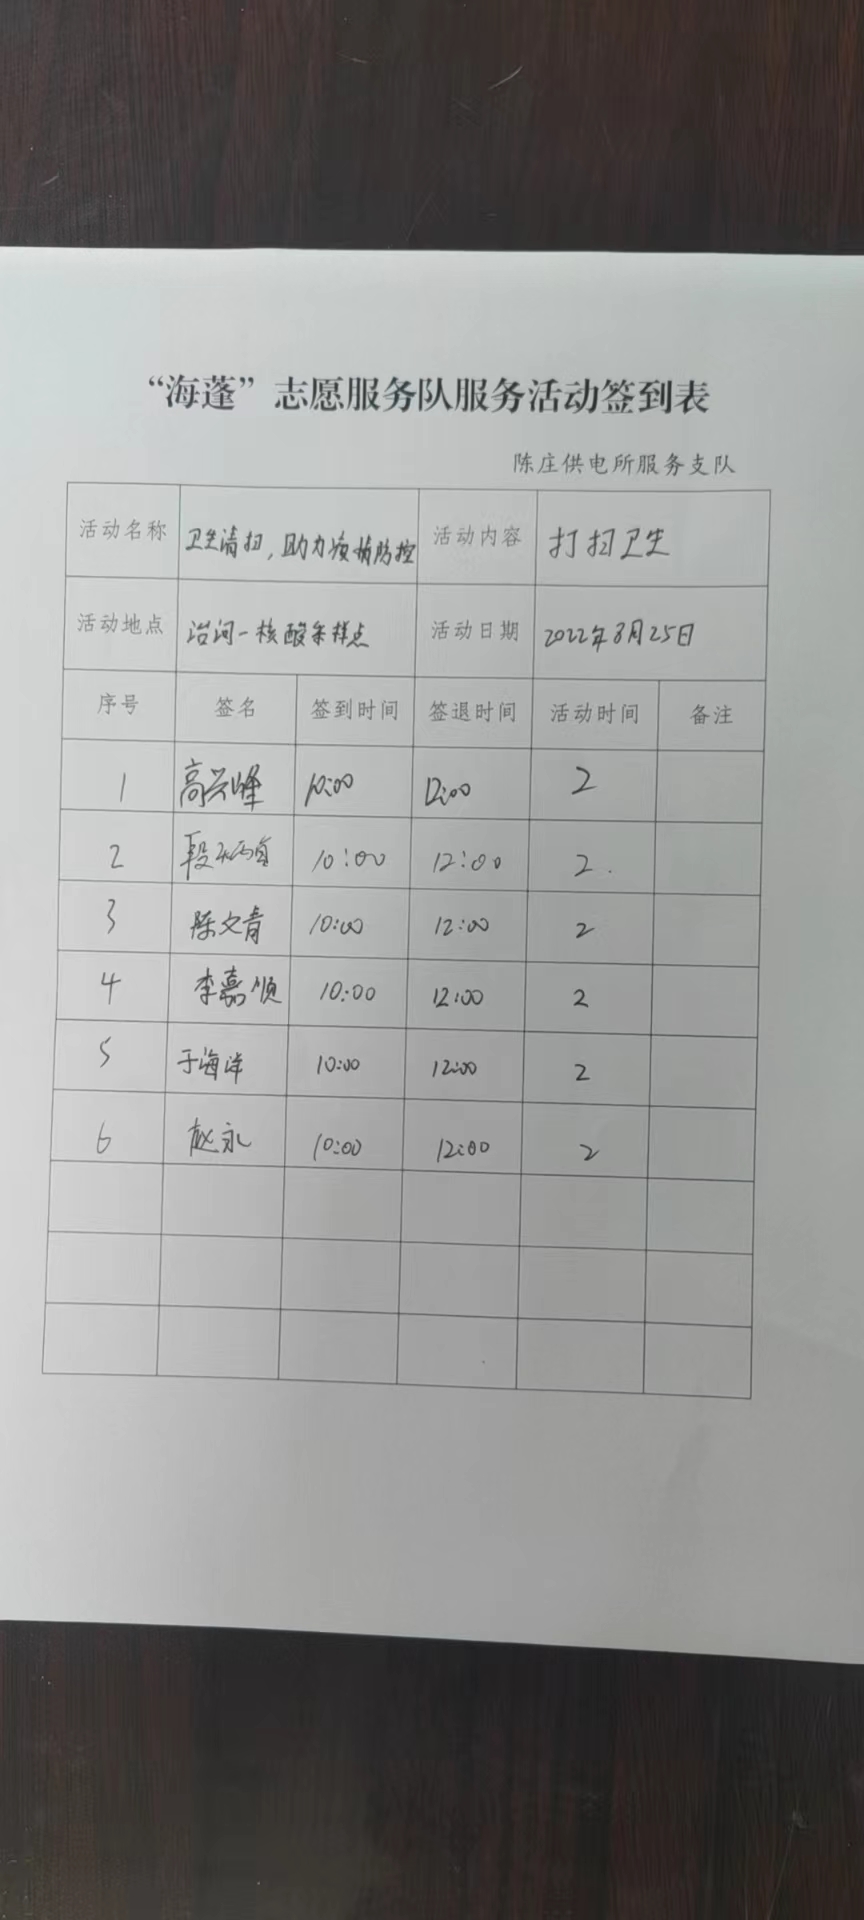 “海蓬”志愿服务队服务活动签到表
陈庄供电所服务支队
活动名称 卫生清扫，助力疫情防控 活动内容 打扫卫生
活动地点 沿河一核酸采样点 活动日期 2022年8月25日
序号 签名 签到时间 签退时间 活动时间 备注
1 高兴峰 10:00 12:00 2
2 段 10:00 12:00 2
3 陈文青 10:00 12:00 2
4 李嘉顺 10:00 12:00 2
5 于海洋 10:00 12:00 2
6 赵永 10:00 12:00 2